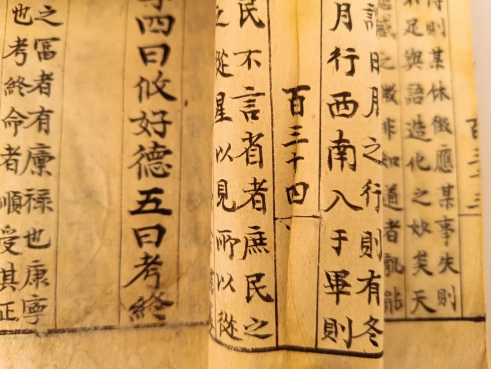 得則某休徵應某事失則
不足與語造化之妙矣天
感之微非知道者孰能
日月之行則有冬
月行西南入于畢則
百三十四
民不言省者庶民之
從星以見所以從
四曰攸好德五曰考終
之富者有廩祿也康寧
也考終命者順受其正